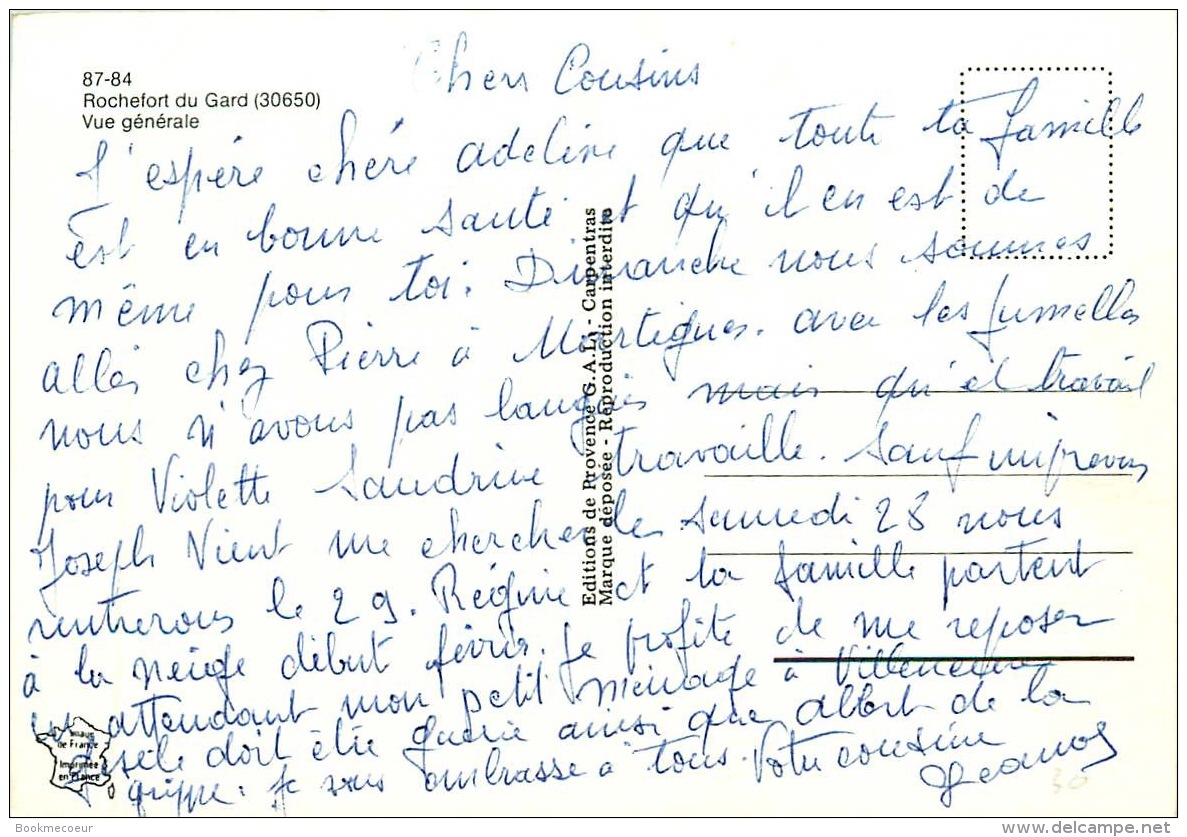 87-84
Rochefort du Gard (30650)
Vue générale
Chers Cousins
J'espére chére adeline que toute ta famille
est en bonne santé et qu'il en est de
même pour toi. Dimanche nous sommes
allés chez Pierre à Martigues. avec les jumelles
nous n'avons pas langüis mais qu'él travail
pour Violette Sandrine travaille. Sauf imprevus
Joseph Vient me chercher le samedi 28 nous
rentrerons le 29. Régine et la famille partent
à la neige début févrie. je profite de me reposer
en attendant mon petit ménage à Villeneuve
Gisèle doit être guerie ainsi que albert de la
grippe. je vous embrasse à tous. Votre cousine
Editions de Provence G.A.L. - Carpentras
Marque déposée - Reproduction interdite
Image
de France
Imprimée
en France
30
Bookmecoeur
delcampe.net